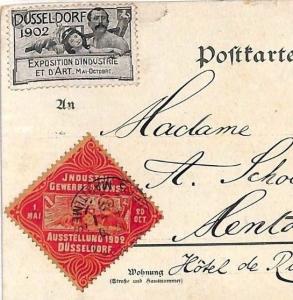 DÜSSELDORF
1902
EXPOSITION D'INDUSTRIE
ET D'ART. MAI-OCTOBRE.
Postkarte
An
Madame
A. Schoe
Menta
Hôtel de Ru
Wohnung
(Straße und Hausnummer)
INDUSTRIE
GEWERBE U. KUNST
1
MAI
20
OCT
AUSSTELLUNG 1902
DÜSSELDORF